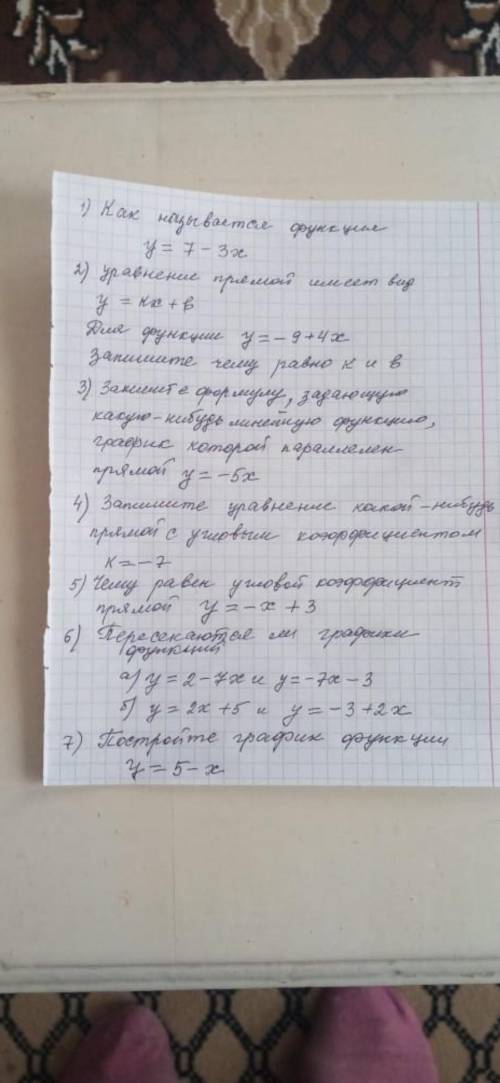 1) Как называется функция
y = 7 - 3x
2) уравнение прямой имеет вид
y = кx + в
Для функции y = - 9 + 4x
Запишите чему равно к и в
3) Запишите формулу, задающую
какую-нибудь линейную функцию,
график которой параллелен
прямой y = -5x
4) Запишите уравнение какой-нибудь
прямой с угловым коэффициентом
к = - 7
5) Чему равен угловой коэффициент
прямой y = - x + 3
6) Пересекаются ли графики
функций
а) y = 2 - 7x и y = -7x - 3
б) y = 2x + 5 и y = -3 + 2x
7) Постройте график функции
y = 5 - x